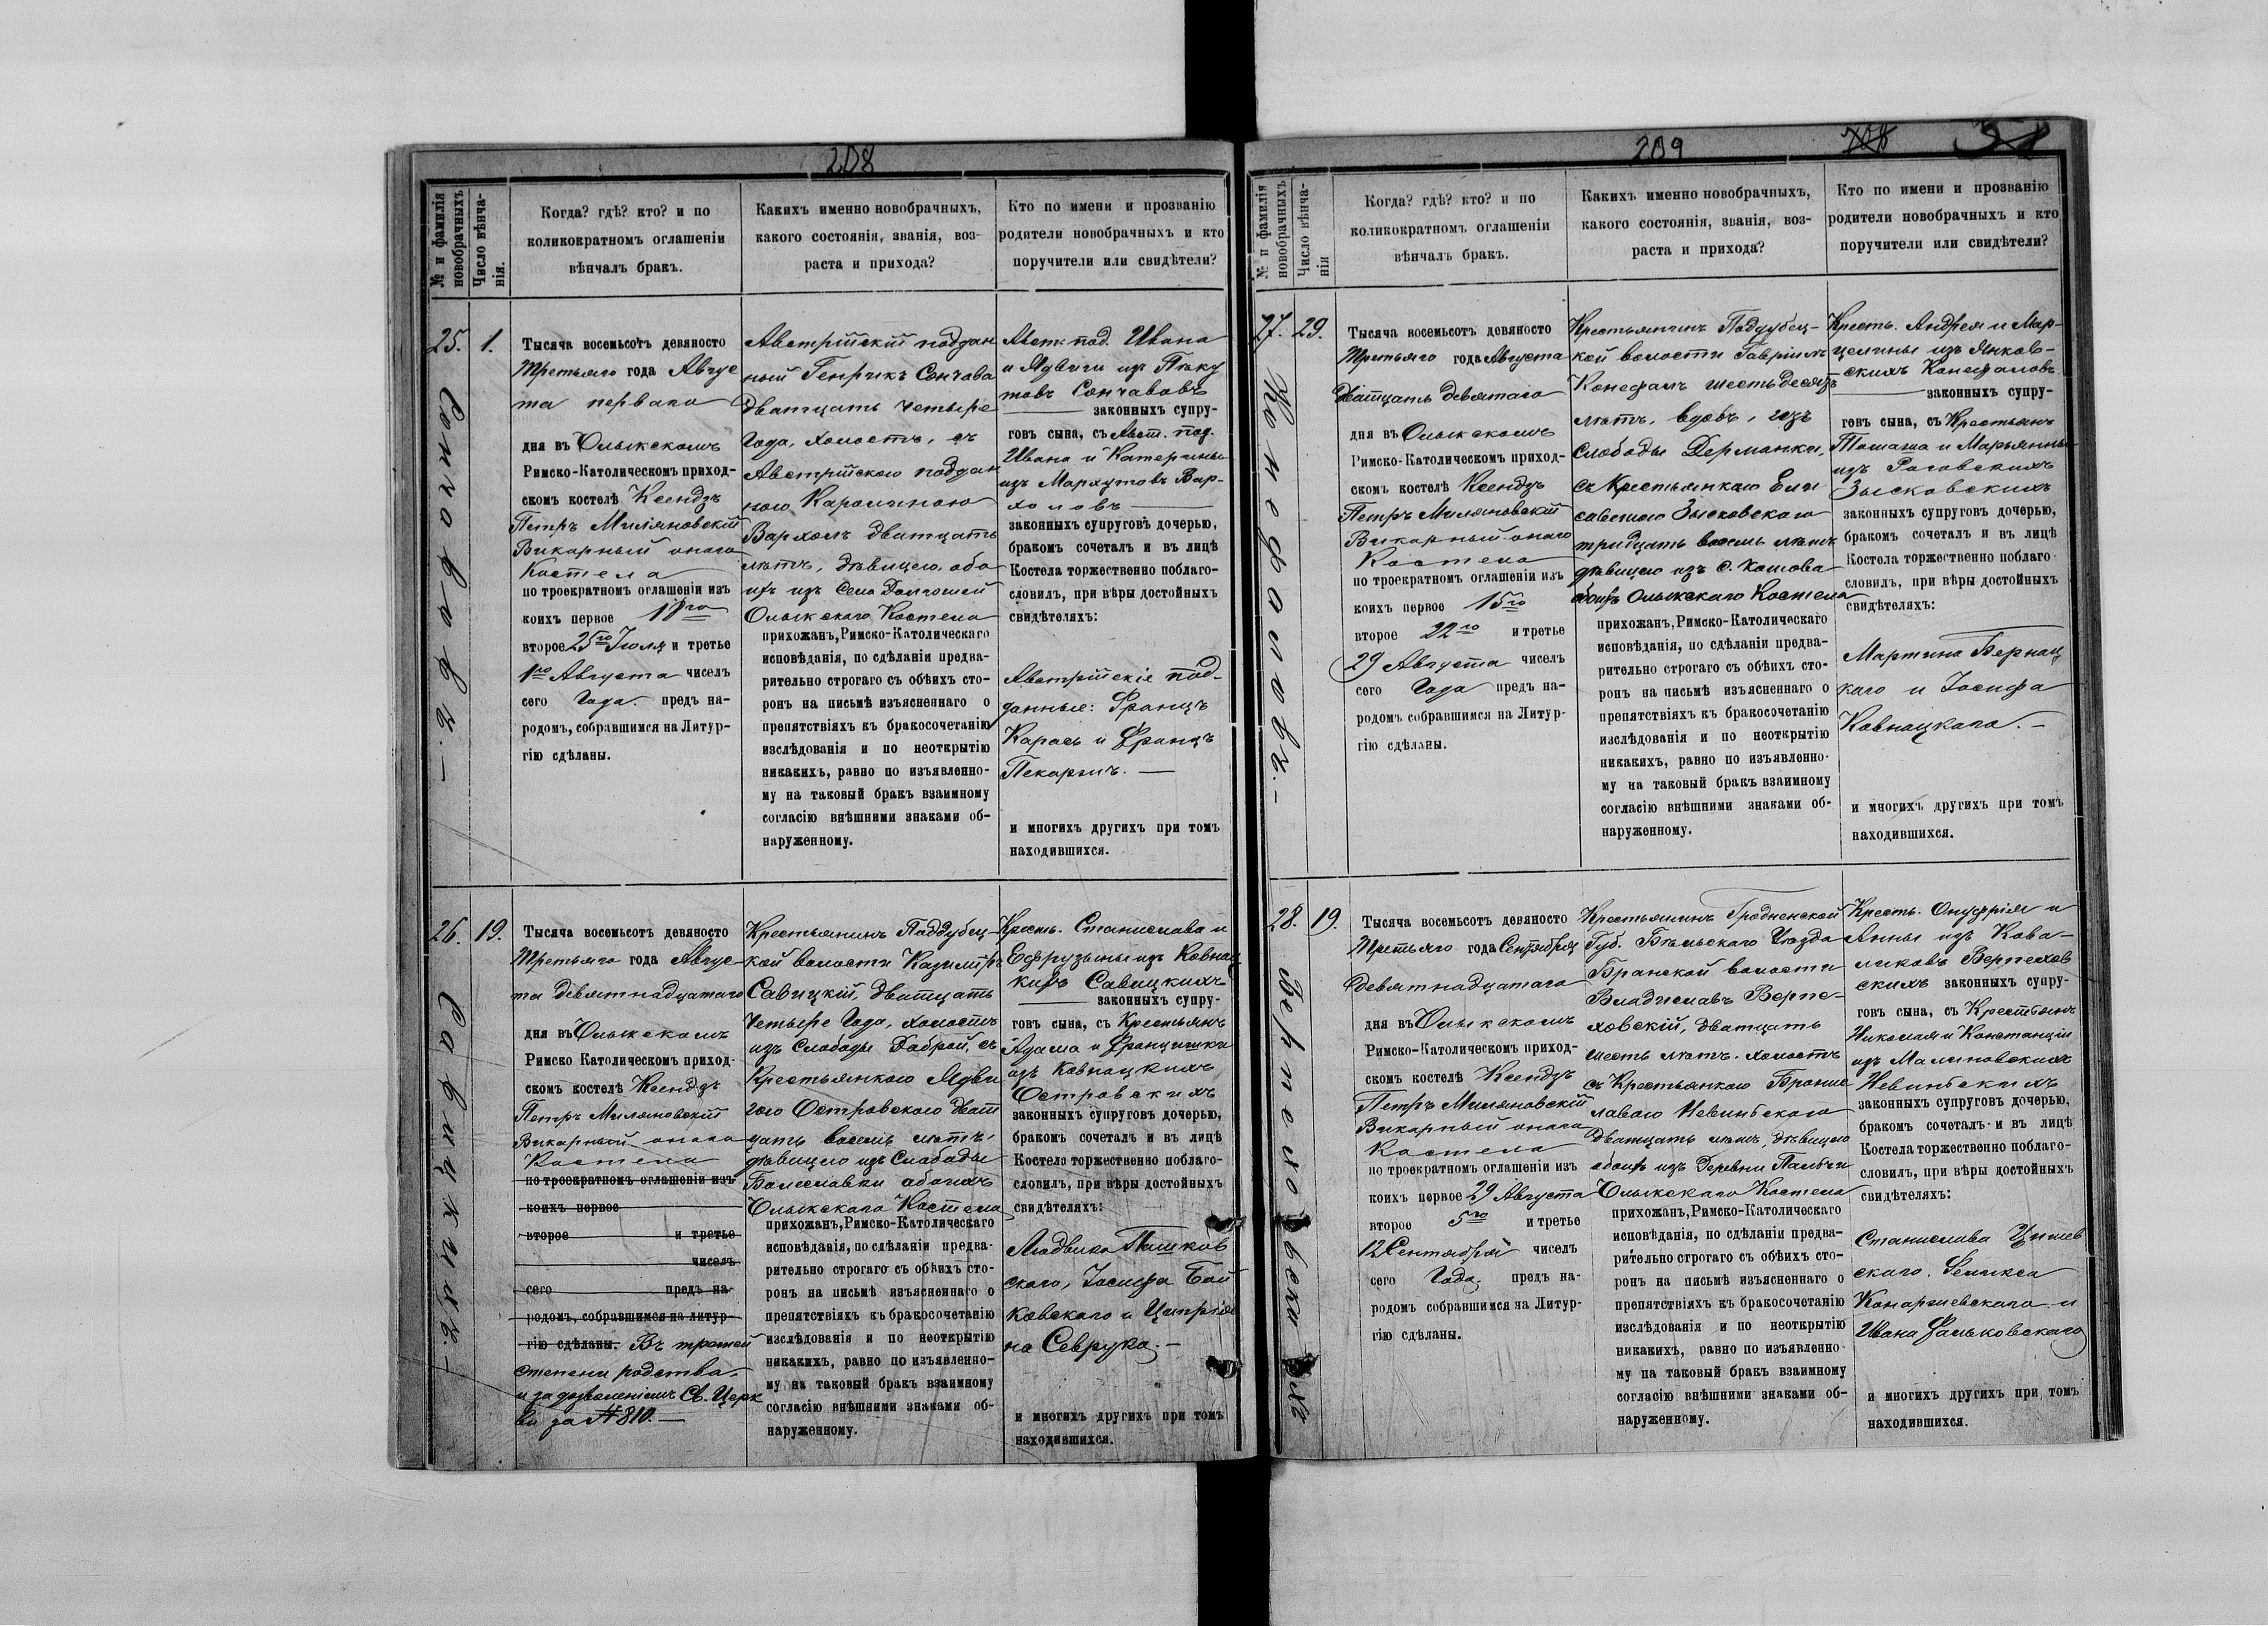 208
№ и фамилія
новобрачныхъ
Число вѣнча-
нія.
Когда? гдѣ? кто? и по
коликократномъ оглашеніи
вѣнчалъ бракъ.
Какихъ именно новобрачныхъ,
какого состоянія, званія, воз-
раста и прихода?
Кто по имени и прозванію
родители новобрачныхъ и кто
поручители или свидѣтели?
25.
1.
Тысяча восемьсотъ девяносто
Третьяго года Авгус
та перваго
дня въ Олыкскомъ
Римско-Католическомъ приход-
скомъ костелѣ Ксендзъ
Петръ Миляновскій
Викарный онаго
Костела
по троекратномъ оглашеніи изъ
коихъ первое 18го
второе 25го Іюля и третье
1го Августа чиселъ
сего Года. предъ на-
родомъ, собравшимся на Литур-
гію сдѣланы.
Австрійскій поддан
ный Генрикъ Сончава
двадцать четыре
Года, холостъ, съ
Австрійскою поддан
ною Каролиною
Вархолъ двадцать
лѣтъ, дѣвицею, обо
ихъ изъ Села Долгошей
Олыкскаго Костела
прихожанъ, Римско-Католическаго
исповѣданія, по сдѣланіи предва-
рительно строгаго съ обѣихъ сто-
ронъ на письмѣ изъясненнаго о
препятствіяхъ къ бракосочетанію
изслѣдованія и по неоткрытію
никакихъ, равно по изъявленно-
му на таковый бракъ взаимному
согласію внѣшними знаками об-
наруженному.
Авст. под. Ивана
и Ядвиги изъ Пѣку
товъ Сончавовъ
законныхъ супру-
говъ сына, съ Авст. под.
Ивана и Катерины
изъ Мархутовъ Вар-
холовъ
законныхъ супруговъ дочерью,
бракомъ сочеталъ и въ лицѣ
Костела торжественно поблаго-
словилъ, при вѣры достойныхъ
свидѣтеляхъ:
Австрійскіе под-
данные: Францъ
Карась и Францъ
Пекаричъ.
и многихъ другихъ при томъ
находившихся.
26.
19.
Тысяча восемьсотъ девяносто
Третьяго года Авгус
та девятнадцатаго
дня въ Олыкскомъ
Римско Католическомъ приход-
скомъ костелѣ Ксендзъ
Петръ Миляновскій
Викарный онаго
Костела
по троекратномъ оглашеніи изъ
коихъ первое
второе и третье
чиселъ
сего предъ на-
родомъ, собравшимся на литур-
гію сдѣланы. Въ третей
степени родства
и за дозволеніемъ Св. Церк
ви за № 810.
Крестьянинъ Поддубец-
кой волости Казиміръ
Савицкій, двадцать
четыре Года, холостъ
изъ Слободы Доброй, съ
Крестьянкою Ядви
гою Островскою двад
цать восемь лѣтъ,
дѣвицею изъ Слободы
Болеславки обоихъ
Олыкскаго Костела
прихожанъ, Римско-Католическаго
исповѣданія, по сдѣланіи предва-
рительно строгаго съ обѣихъ сто-
ронъ на письмѣ изъясненнаго о
препятствіяхъ къ бракосочетанію
изслѣдованія и по неоткрытію
никакихъ, равно по изъявленно-
му на таковый бракъ взаимному
согласію внѣшними знаками об-
наруженному.
Крест. Станислава и
Ефрузыны изъ Ковнац
кихъ Савицкихъ
законныхъ супру-
говъ сына, съ Крестьянъ
Адама и Францишки
изъ Ковнацкихъ
Островскихъ
законныхъ супруговъ дочерью,
бракомъ сочеталъ и въ лицѣ
Костела торжественно поблаго-
словилъ, при вѣры достойныхъ
свидѣтеляхъ:
Людвика Пашков
скаго, Іосифа Бой
ковскаго и Ципріа
на Севрука.
и многихъ другихъ при томъ
находившихся.
Сончавовъ.
Савицкихъ.
209
708
51
№ и фамилія
новобрачныхъ
Число вѣнча-
нія
Когда? гдѣ? кто? и по
коликократномъ оглашеніи
вѣнчалъ бракъ.
Какихъ именно новобрачныхъ,
какого состоянія, званія, воз-
раста и прихода?
Кто по имени и прозванію
родители новобрачныхъ и кто
поручители или свидѣтели?
27.
29.
Тысяча восемьсотъ девяносто
Третьяго года Августа
двадцать девятаго
дня въ Олыкскомъ
Римско-Католическомъ приход-
скомъ костелѣ Ксендзъ
Петръ Миляновскій
Викарный онаго
Костела
по троекратномъ оглашеніи изъ
коихъ первое 15го
второе 22го и третье
29 Августа чиселъ
сего Года предъ на-
родомъ собравшимся на Литур-
гію сдѣланы.
Крестьянинъ Поддубец-
кой волости Гавріилъ
Конефалъ шестьдесятъ
лѣтъ, вдовъ, изъ
слободы Дерманки,
съ Крестьянкою Ели
саветою Зысковскою
тридцать восемь лѣтъ
дѣвицею изъ с. Котова
обоихъ Олыкскаго Костела
прихожанъ, Римско-Католическаго
исповѣданія, по сдѣланіи предва-
рительно строгаго съ обѣихъ сто-
ронъ на письмѣ изъясненнаго о
препятствіяхъ къ бракосочетанію
изслѣдованія и по неоткрытію
никакихъ, равно по изъявленно-
му на таковый бракъ взаимному
согласію внѣшними знаками об-
наруженному.
Крест. Андрея и Мар-
целины изъ Янков-
скихъ Конефаловъ
законныхъ супру-
говъ сына, съ Крестьянъ
Томаша и Марьянны
изъ Роговскихъ
Зысковскихъ
законныхъ супруговъ дочерью,
бракомъ сочеталъ и въ лицѣ
Костела торжественно поблаго-
словилъ, при вѣры достойныхъ
свидѣтеляхъ:
Мартина Бернац
каго и Іосифа
Ковнацкаго.
и многихъ другихъ при томъ
находившихся.
28.
19.
Тысяча восемьсотъ девяносто
Третьяго года Сентября
девятнадцатаго
дня въ Олыкскомъ
Римско-Католическомъ приход-
скомъ костелѣ Ксендзъ
Петръ Миляновскій
Викарный онаго
Костела
по троекратномъ оглашеніи изъ
коихъ первое 29 Августа
второе 5го и третье
12 Сентября чиселъ
сего Года предъ на-
родомъ собравшимся на Литур-
гію сдѣланы.
Крестьянинъ Гродненской
Губ. Бѣльскаго Уѣзда
Бранской волости
Владиславъ Верпе-
ховскій, двадцать
шесть лѣтъ, холостъ
съ Крестьянкою Брони
славою Невинбскою
двадцать лѣтъ, дѣвицею
обоихъ изъ Деревни Палбчи
Олыкскаго Костела
прихожанъ, Римско-Католическаго
исповѣданія, по сдѣланіи предва-
рительно строгаго съ обѣихъ сто-
ронъ на письмѣ изъясненнаго о
препятствіяхъ къ бракосочетанію
изслѣдованія и по неоткрытію
никакихъ, равно по изъявленно
му на таковый бракъ взаимному
согласію внѣшними знаками об-
наруженному.
Крест. Онуфрія и
Анны изъ Кова-
ликовъ Верпехов
скихъ законныхъ супру-
говъ сына, съ Крестьянъ
Николая и Констанціи
изъ Малиновскихъ
Невинбскихъ
законныхъ супруговъ дочерью,
бракомъ сочеталъ и въ лицѣ
Костела торжественно поблаго-
словилъ, при вѣры достойныхъ
свидѣтеляхъ:
Станислава
скаго, Феликса
Конаржевскаго и
Ивана Фальковскаго
и многихъ другихъ при томъ
находившихся.
Конефаловъ.
Верпеховскихъ